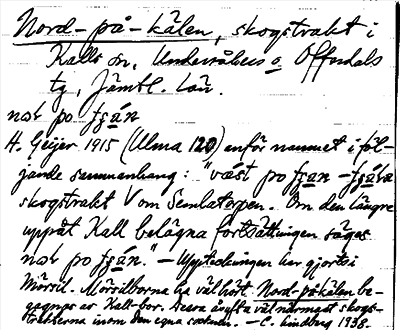 Nord-på-kälen, skogstrakt i
Kalls sn, Undersåkers o Offerdals
tg, Jämtl. län.
nor po
H. Geijer 1915 (Ulma 120) anför namnet i föl-
jande sammanhang: "väst po
skogstrakt V om Semlatorpen. Om den längre
uppåt Kall belägna fortsättningen säges
nor po ." – Uppteckningen har gjorts i
Mörsil. Mörsilborna ha väl hört Nord-på-kälen be-
gagnas av Kall-bor. Dessa åsyfta väl närmast skogs-
trakterna inom den egna socknen. – C. Lindberg 1938.